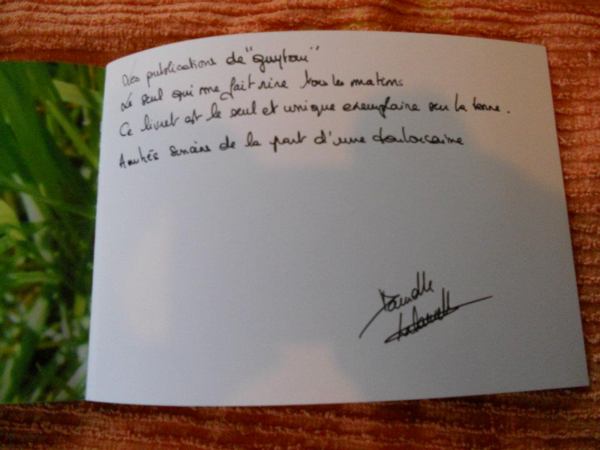 Des publications de "guytou"
Le seul qui me fait rire tous les matins
Ce livret est le seul et unique exemplaire sur la terre.
Amitiés sincères de la part d'une toulousaine
Danielle